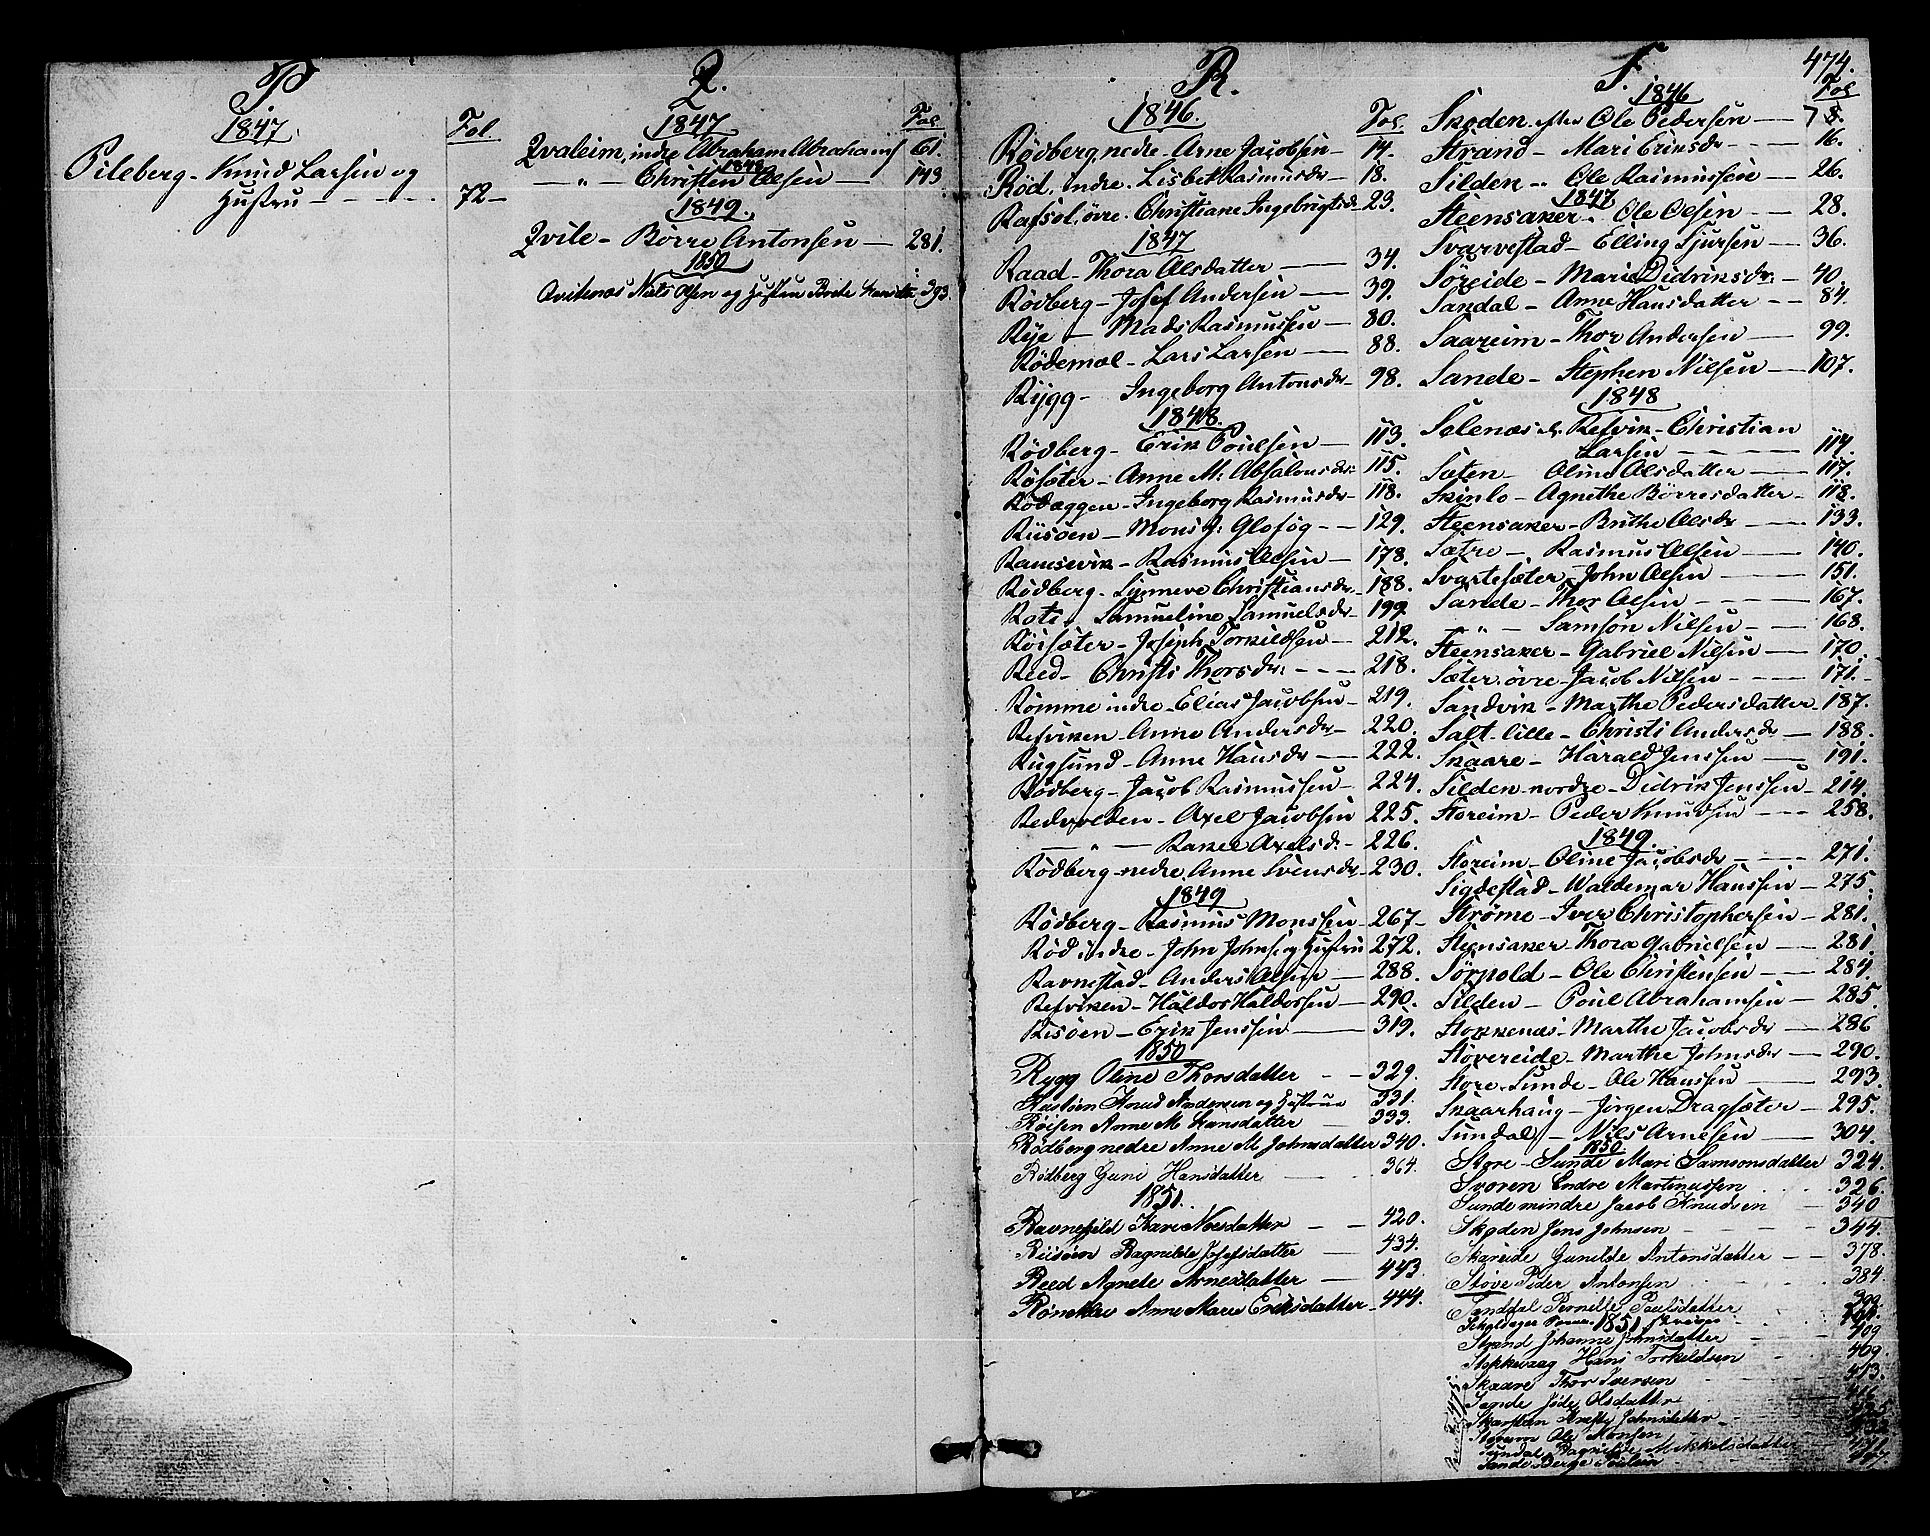 P
1847.
Fol.
Pileberg - Knud Larsen og
Hustru - - - - - 72 -
Q.
1847
Fol.
Qvaleim, indre Abraham Abrahams 61.
1848
— " — Christen Olsen — 143
1849.
Qvile - Börre Antonsen — 281.
1850
Qvitenæs Niels Olsen og Hustru Brite 393.
R.
1846.
Fol.
Rödberg, nedre - Arne Jacobsen - 14.
Röd, indre. Lisbet Rasmusdr - 18.
Rafsol, övre. Christiane Ingebrigtsd - 23.
1847
Raad - Thora Olsdatter — 34.
Rödberg - Josef Andersen — 39.
Rye — Mads Rasmussen — 80.
Rödemæl - Lars Larsen — 88.
Rygg - Ingeborg Antonsdr - 98.
1848.
Rödberg - Erik Poulsen — 113.
Rösæter - Anne M: Absalonsdr: 115.
Rödæggen - Ingeborg Rasmusdr - 118.
Riisöen - Mons J: Glosög - - 129.
Ramsevik - Rasmus Olsen - 178.
Rödberg - Synneve Christiansdr - 188.
Rote, Samueline Samuelsdr - 199.
Röisæter - Joseph Torkildsen - 212.
Reed - Christi Thorsdr: - - - 218.
Römme indre - Elias Jacobsen - 219.
Refviken - Anne Andersdr - 220.
Rugsund - Anne Hansdr — 222.
Rödberg - Jacob Rasmussen - 224.
Redvolden - Axel Jacobsen 225.
— " — Rakel Axelsd. - 226.
Rödberg - nedre, Anne Svensdr - 230.
1849
Rödberg - Rasmus Monssen - 267 -
Röd indre - John Johns. og Hustru 272.
Ravnestad - Anders Olsen — 288.
Refviken - Haldor Haldorsen — 290.
Risöen - Erik Jenssen — 319.
1850
Rygg Oline Thorsdatter - - 329.
Knud Andersen og Hustrue 331.
Röisen Anne M Hansdatter — 333.
Rödberg nedre Anne M Johnsdatter 340.
Rödberg Guni Hansdatter — 364.
1851.
Kari Nilsdatter - - 420.
Riisöen Ragnilde Josefsdatter — 434.
Reed Agnete Arnesdatter — 443.
Anne Marie Eriksdatter - 444.
S.
474.
1846
Fol
Skoden. efter Ole Pedersen — 78.
Strand - Mari Eriksdr - - - - 16.
Silden - . Ole Rasmussen — 26.
1847
Steensaker. Ole Olsen - - 28.
Svarvestad - Elling Sjursen — 36.
Söreide - Marie Didriksdr: - 40.
Sandal - Anne Hansdatter - - 84.
Saareim - Thor Andersen — 99.
Sande - Stephen Nilsen — 107.
1848
Selenæs d. Refvik - Christian
Larsen - - - - - 114.
Sæten - Olina Olsdatter — 117.
Skinlo - Agnethe Börresdatter - 118.
Steensaker - Brithe Olsdr — 133.
Sætre — Rasmus Olsen — 140.
Svartesæter - John Olsen — 151.
Sande - Thor Olsen - - - - 167.
- " - Samson Nilsen — - 168.
Steensaker - Gabriel Nilsen — 170.
Sæter, övre - Jacob Nilsen - - - 171.
Sandvik - Marthe Pedersdatter 187.
Salt-lille - Christi Andersdr - 188.
Skaare - Harald Jenssen — 191.
Silden nordre - Didrik Jenssen - 214.
Storeim - Peder Knudsen - - - 258.
1849.
Storeim - Oline Jacobsdr - - - 271.
Sigdestad - Waldemar Hanssen - 275.
Ströme - Iver Christophersen - 281.
Steensaker Thora Gabrielsen — 281
Sörpold - Ole Christensen - - 284.
Silden - Poul Abrahamsen - 285.
Stokkenæs - Marthe Jacobsdr - 286
Stövereide - Marthe Johnsdr — 290.
Store-Sunde - Ole Hanssen — 293.
Skaarhaug - Jörgen Dragsæter - 295.
Sundal, - Nils Arnesen — 304.
1850.
Store-Sunde Mari Samsonsdatter 324.
Svoren Endre Martinussen . . . 326.
Sunde mindre Jacob Knudsen — 340
Skoden Jens Johnsen - - - 344.
Skareide Gunilde Antonsdatter - - 378.
Stöve Peder Antonsen 384
Pernille Paulsdatter
1851
Strand Johanne Johnsdatter - 409
Stokkevaag Hans Torkeldsen - 409.
Skaare Thor Iversen - 413.
Sande Olsdatter
Johnsdatter
Ole Monsen
Sundal, Ragnilde Mikkelsdatter
Sande Berge